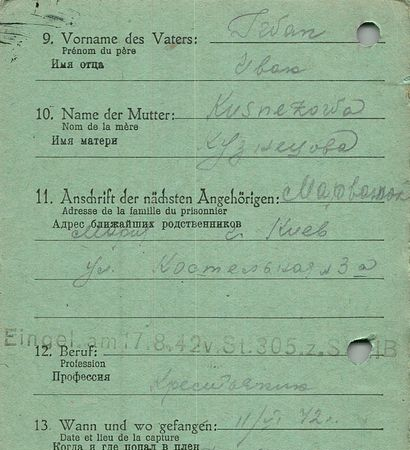 9. Vorname des Vaters: Iвan
Prénom du père
Имя отца Иван
10. Name der Mutter: Kusnezowa
Nom de la mère
Имя матери Кузнецова
11. Anschrift der nächsten Angehörigen:
Adresse de la famille du prisonnier
Адрес ближайших родственников
Мария г. Киев
ул. Костельная 3а
Eingel. am 17.8.42 v. St. 305. z. S
12. Beruf:
Profession
Профессия
13. Wann und wo gefangen: 11/VI 42 г.
Date et lieu de la capture
Когда и где попал в плен